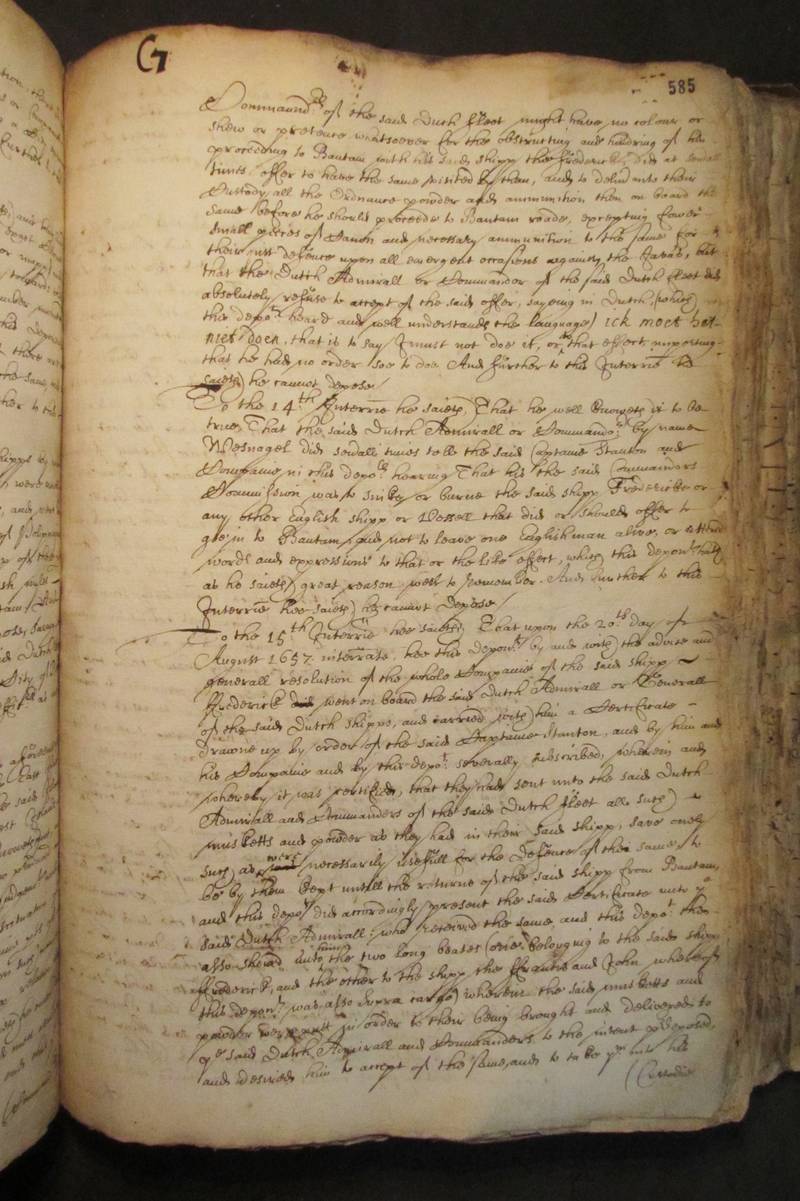 G
585
Commaunder of the said Dutch ffleet might have no colour or
shew or pretence whatsoever for the obstructing and hindring of his
proceeding to Bantam with his said shipp the ffrederick, did at severall
times offer to have the same visited by them, and to deliver into their
Custody all the Ordnance powder and ammunition then on board the
same before he should proceede to Bantam roade, excepting fower
small pieces of Canon and necessary ammunition to the same for
their just defence upon all emergent occasions against the Javas, but
that the Dutch Admirall or Commander of the said Dutch ffleet did
absolutely refuse to accept of the said offer, sayeing in Dutch (which
this depot heard and well understands the language) ick moet het
niet doen, that is to say I must not doe it, or to that effect importing
that he had no order soe to doe. And further to this Interrie he
saieth he cannot depose/
To the 14th Interrie he saieth, That he well knoweth it to be
true, That the said Dutch Admirall or Commander by name
Wesnagel did severall times tell the said Captaine Stanton and
Companie in this depots hearing That his the said Commanders
Commission was to sinke or burne the said shipp Frederick or
any other English shipp or Vessell that did or should offer to
goe in to Bantam, and not to leave one Englishman alive, or
words and expressions to that or the like effect, which this deponent hath
as he saieth great reason well to remember. And further to this
Interrie hee saieth he cannot depose/
To the 15th Interrie hee saieth, That upon the 20th day of
August 1657 interrate, hee this deponent by and with the advise and
generall resolution of the whole Companie of the said shipp
ffrederick went on board the said Dutch Admirall or Generall
of the said Dutch shipps, and carried with him a Certificate
drawne up by order of the said Captaine Stanton, and by him and
his Companie and by this depot severally subscribed, wherein and
whereby it was certified, that they had sent unto the said Dutch
Admirall and Commanders of the said Dutch ffleet all such
musketts and powder as they had in their said shipp, save onely
such as were necessarily usefull for the Defence of the same to
be by them kept untill the returne of the said shipp from Bantam,
and this depot did accordingly present the said Certificate unto ye
said Dutch Admirall, who received the same and this depot then
also shewed unto him the two long boates (one belonging to the said shipp
ffrederick, and the other to the shipp the ffrancis and John whereof
this deponent was also supra cargo) wherein the said musketts and
powder were sent in order to their being brought and delivered to
ye said Dutch Admirall and Commanders to the intent predeposed,
and desired him to accept of the same, and to take them into his
(Custodie